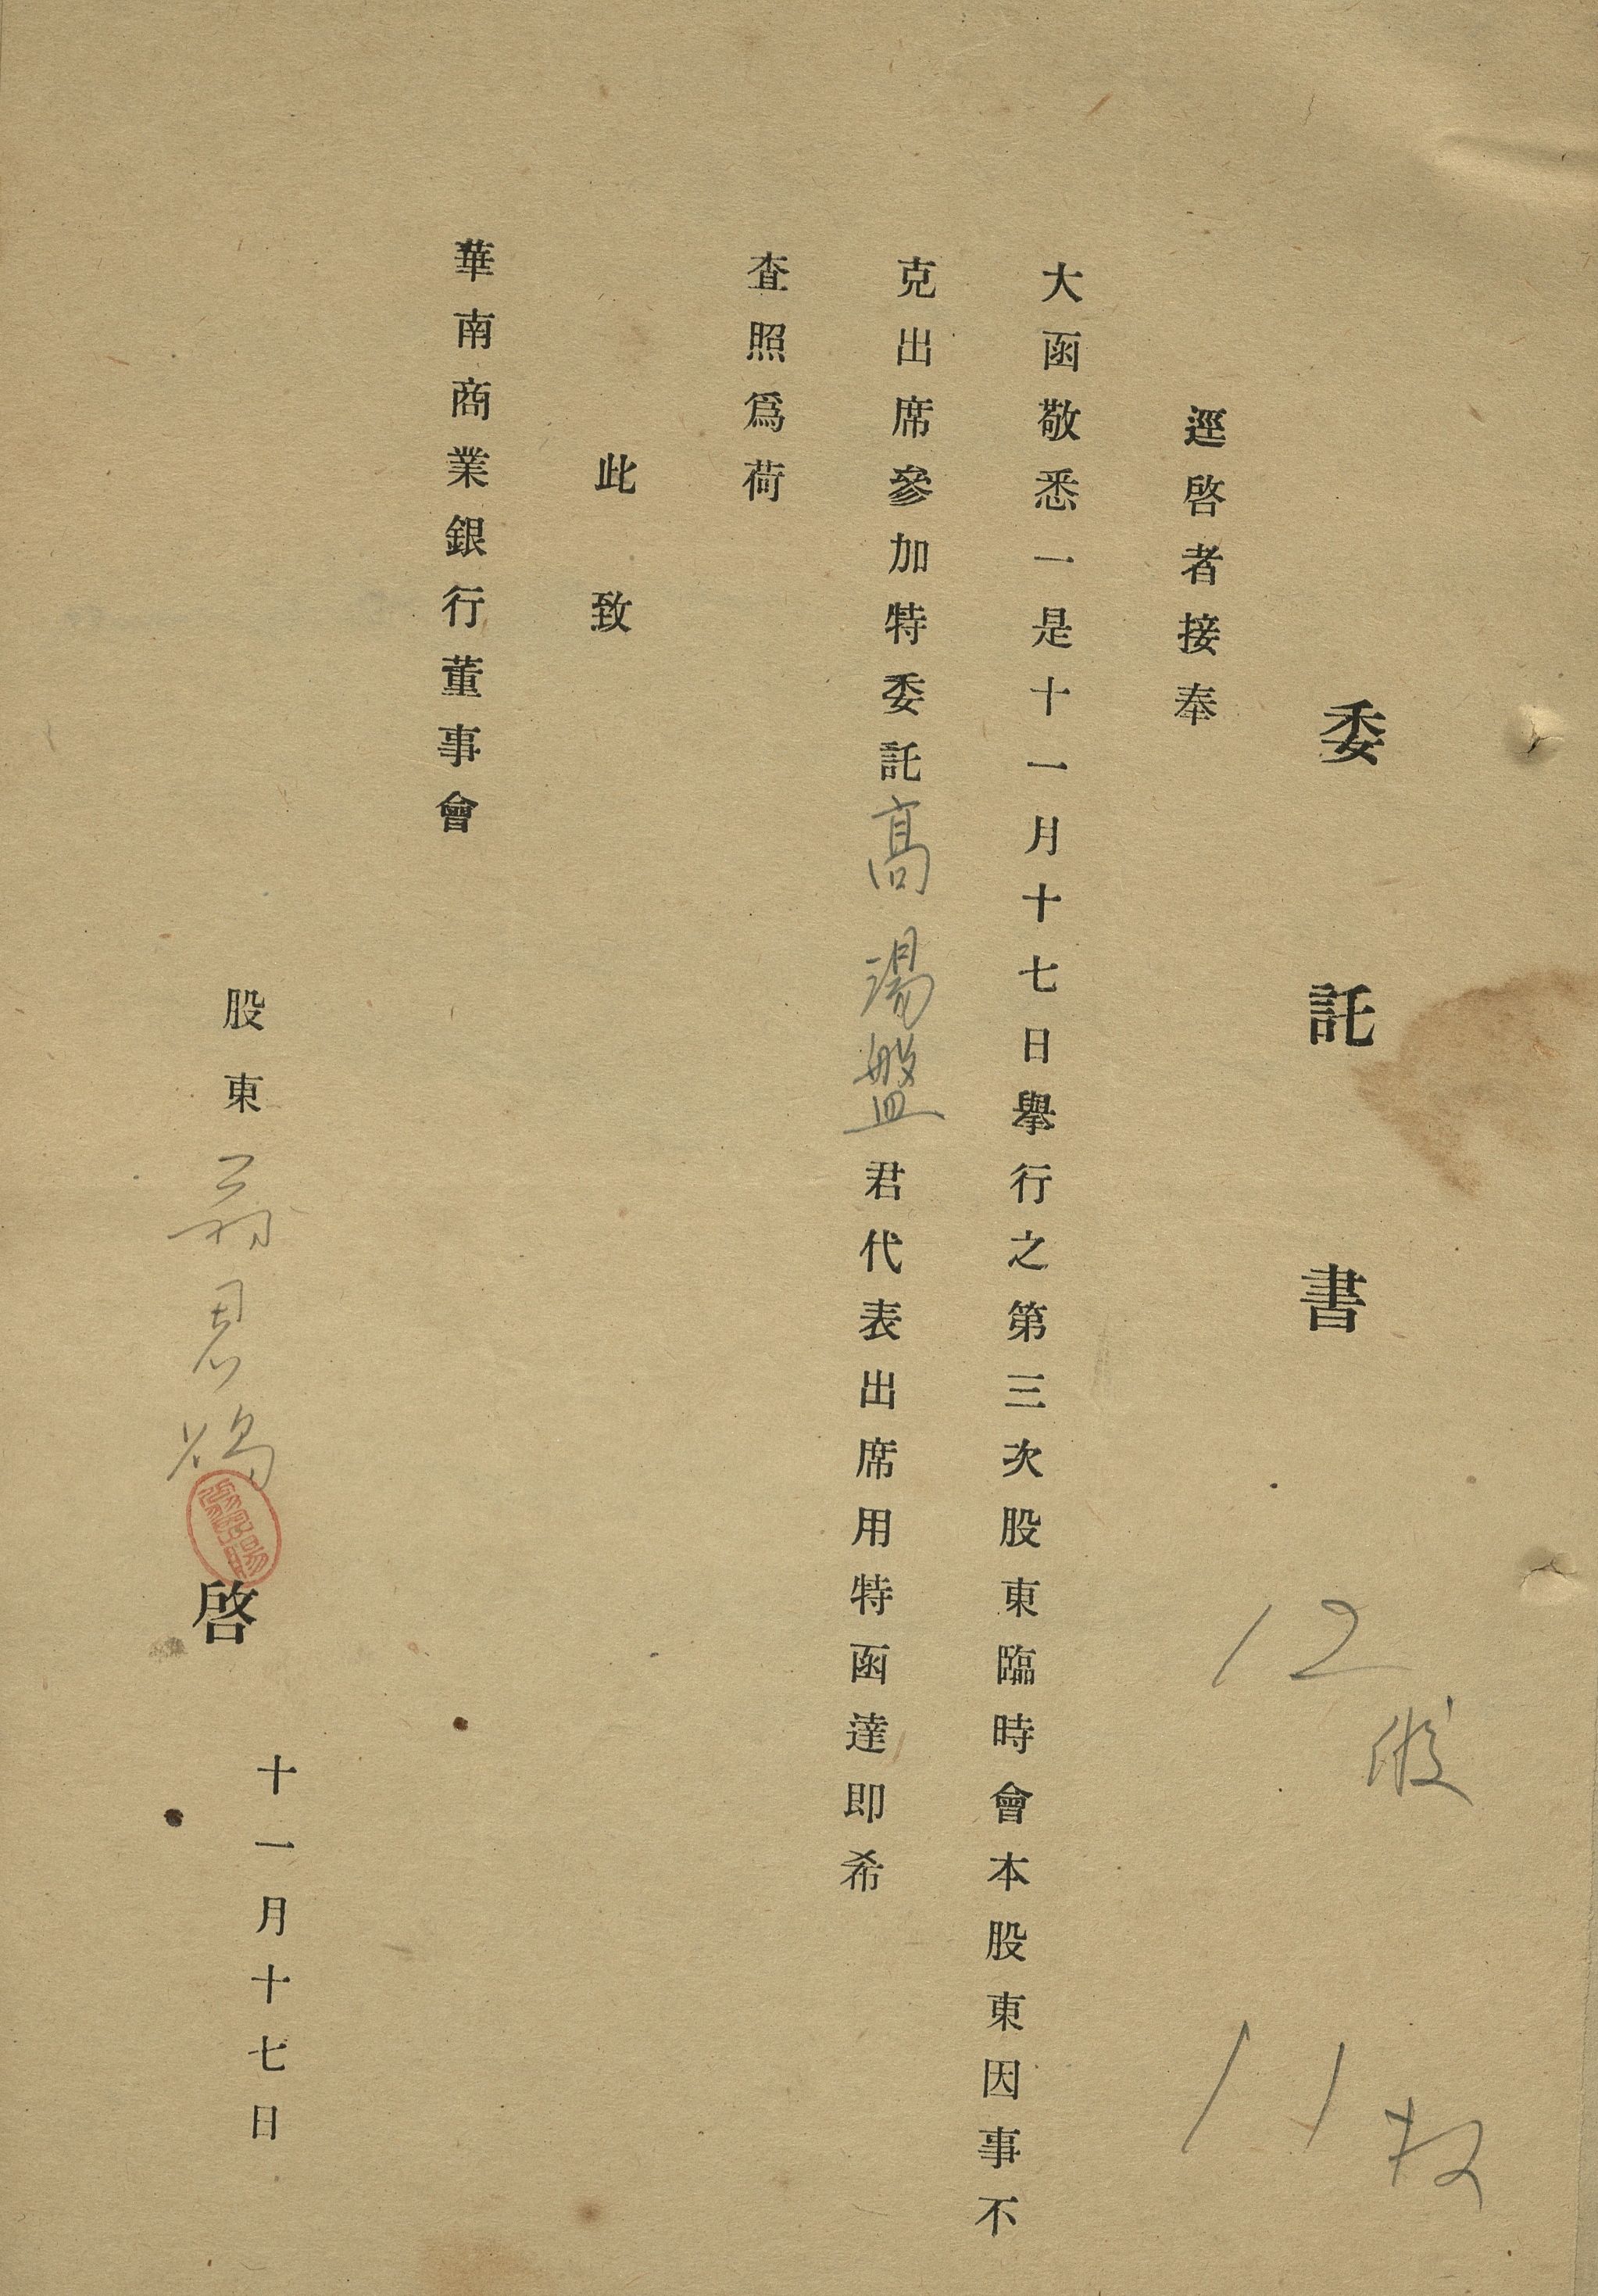 委託書
逕啓者接奉
大函敬悉一是十一月十七日舉行之第三次股東臨時會本股東因事不
克出席參加特委託高湯盤君代表出席用特函達即希
查照爲荷
此致
華南商業銀行董事會
股東翁恩賜啓
十一月十七日
12股
11权